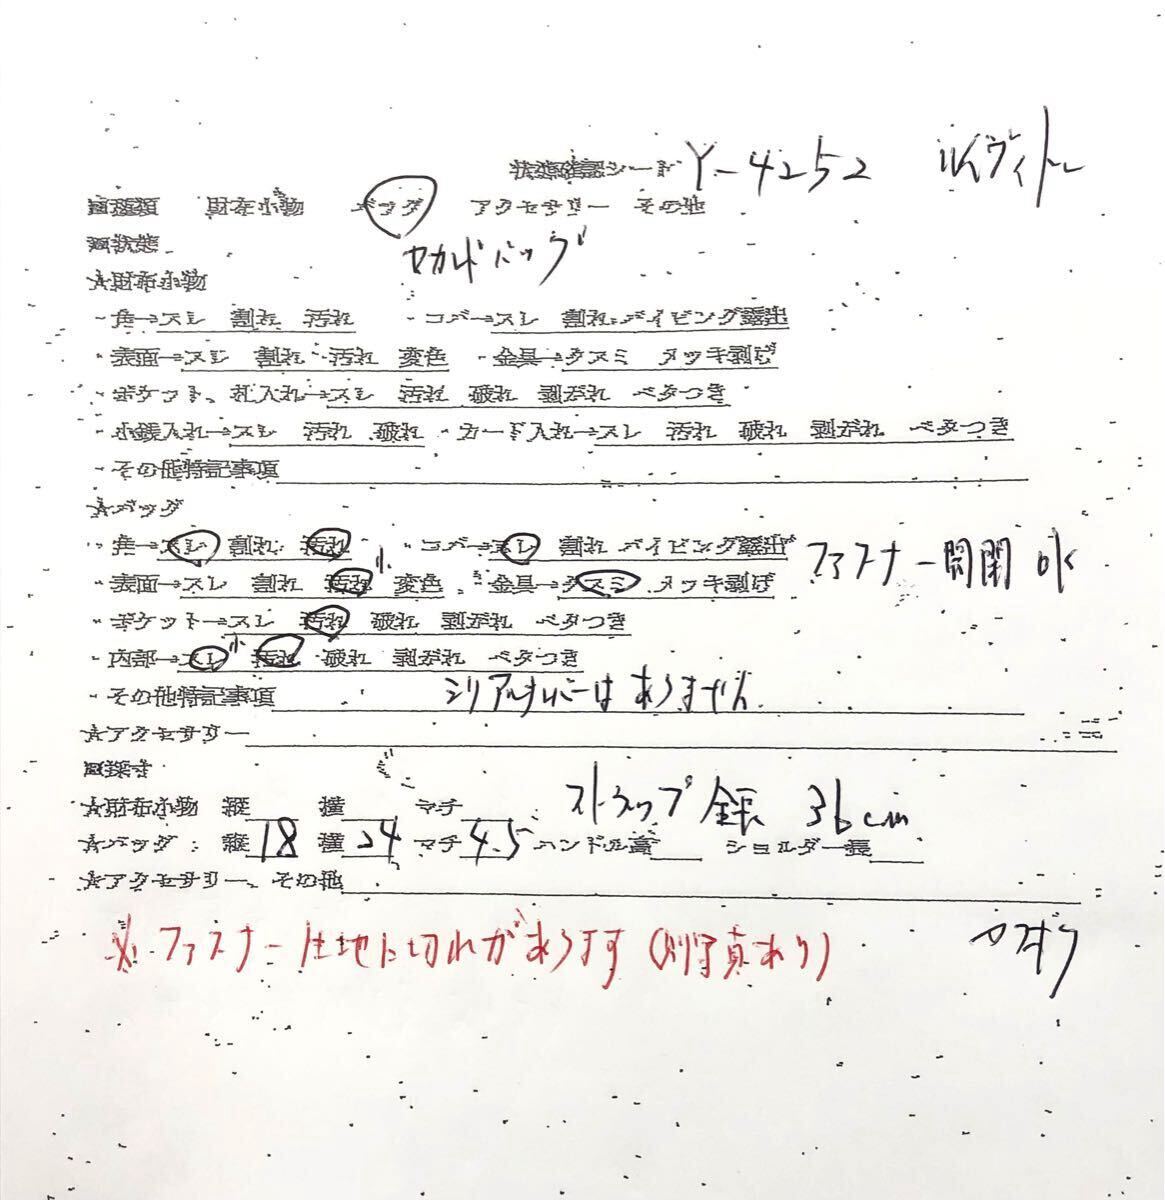 状態確認シート Y-4252 ルイヴィトン
■種類 財布小物 バッグ アクセサリー その他
■状態 セカンドバッグ
★財布小物
・角→スレ 割れ 汚れ ・コバ→スレ 割れ パイピング露出
・表面→スレ 割れ 汚れ 変色 ・金具→クスミ メッキ剥げ
・ポケット、札入れ→スレ 汚れ 破れ 剥がれ ベタつき
・小銭入れ→スレ 汚れ 破れ ・カード入れ→スレ 汚れ 破れ 剥がれ ベタつき
・その他特記事項
★バッグ
・角→スレ 割れ 汚れ ・コバ→スレ 割れ パイピング露出 ファスナー開閉 ok
・表面→スレ 割れ 汚れ 小 変色 ・金具→クスミ メッキ剥げ
・ポケット→スレ 汚れ 破れ 剥がれ ベタつき
・内部→スレ 小 汚れ 破れ 剥がれ ベタつき
・その他特記事項 シリアルナンバーはありません
★アクセサリー
■採寸
★財布小物 縦 横 マチ ストラップ全長 36cm
★バッグ: 縦 18 横 24 マチ 4.5 ハンドル高 ショルダー長
★アクセサリー、その他
※ファスナー生地に切れがあります(別写真あり)